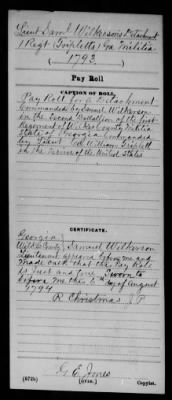 Lieut Saml Wilkerson's Detachment
1 Regt (Triplett's) Ga. Militia
1793.
Pay Roll
CAPTION OF ROLL.
Pay Roll for a Detachment
Commanded by Samuel Wilkerson
in the Second Battalion of the first
Regiment of Wilkes County Militia
State of Georgia Commanded
by Lieut Col William Triplett
in the Service of the United States
CERTIFICATE.
Georgia
Wilkes County Samuel Wilkerson
Lieutenant appeared before me and
made oath that the Pay Role
is Just and true Sworn to
before me this day of August
1794
R. Christmas J P
G. E. Jones
(672b) (OVER.) Copyist.